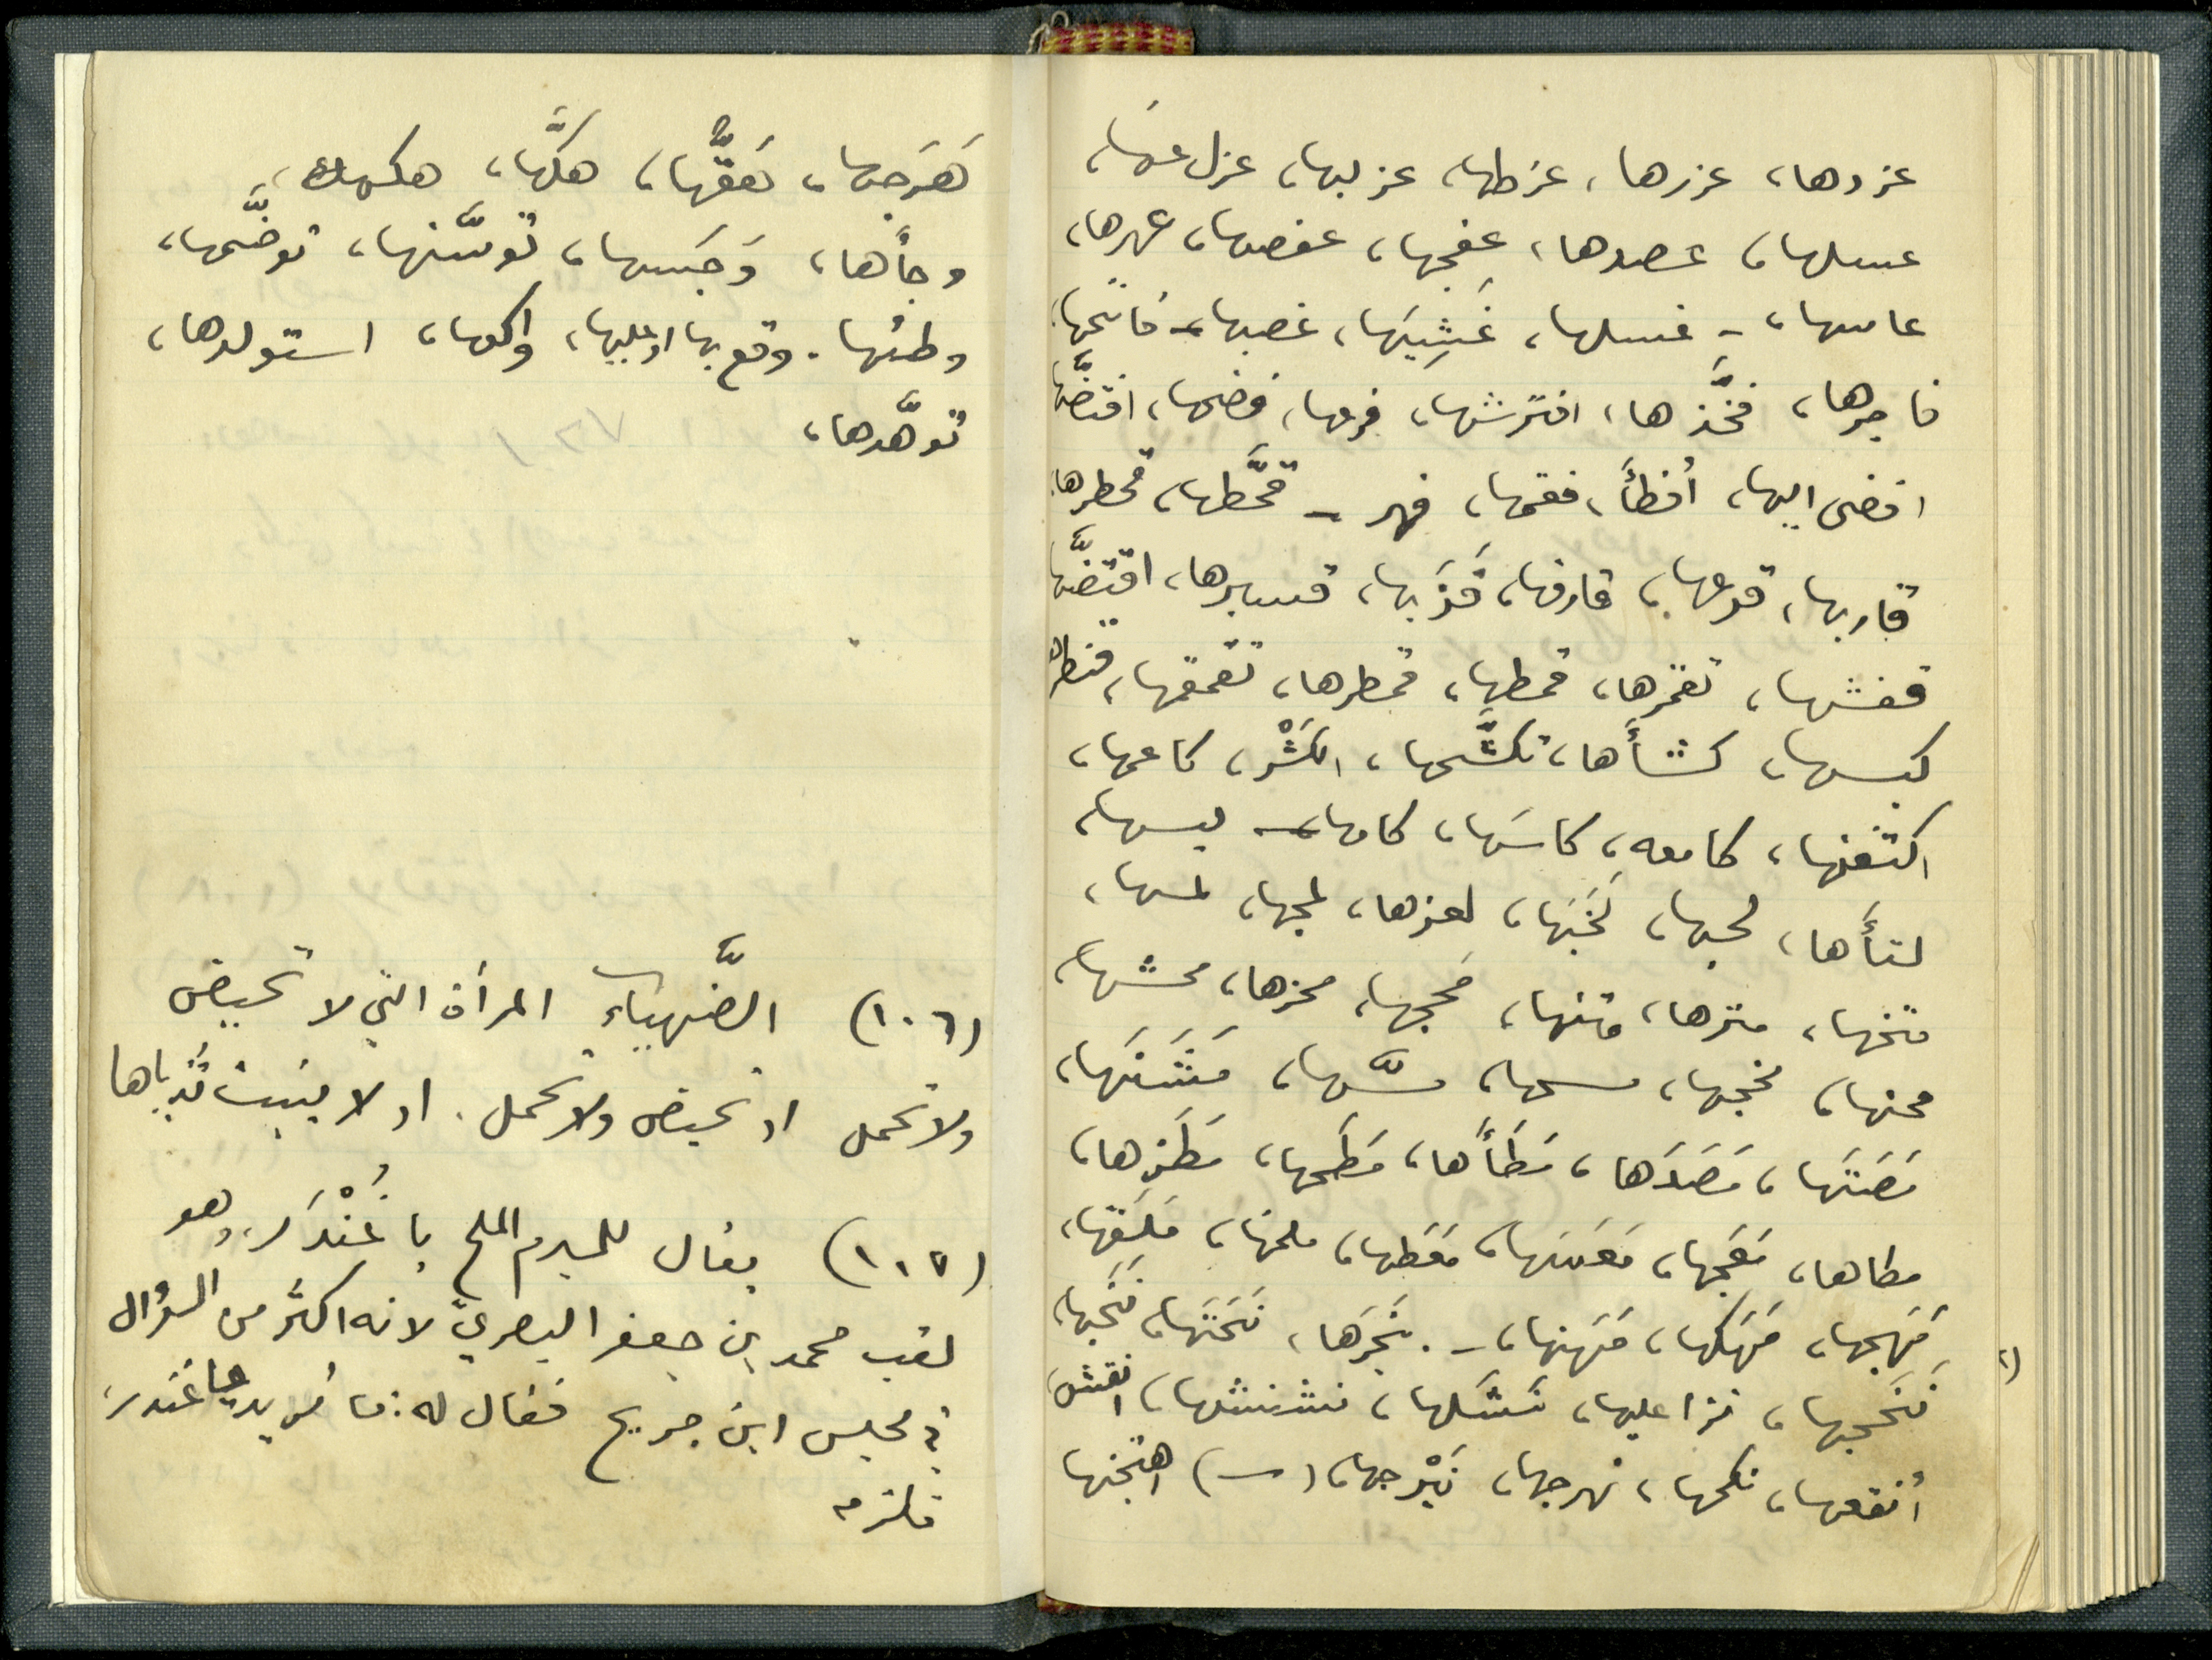 عزدها، عزرها، عزطها، عزلبها، عزل عنها،
عسلها، عصدها، عفجها، عفصها، عهرها،
عامسها، - غسلها، غَشِيَها، غصبها - فاتحها،
فاجرها، فخَّذها، افترشها، فرعها، فضحها، افتضَّها
افضى اليها، أفطأ، فقمها، فهر - قحَّطها، قحطرها،
قاربها، قرعها، قارفها، قَزَبها، قسبرها، اقتضَّها
قفشها، تقمَّزها، قمطها، قمطرها، تقمقمها، قنطرها
كبسها، كشأها، تكشَّحها، الكَشْر، كاعمها،
اكتفنها، كامعه، كاسَها، كامها - لبسها،
لتأها، لحبها، لَخَبَها، لعزها، لمجها، لمسها،
متخها، مترها، متنها، مَحجها، محزها، محشها،
محنها، مخجها، مسحها، مسَّها، مَشَنَها،
مَصَتَها، مَصَدَها، مَطَأَها، مَطَحها، مَطَزها،
مطاها، مَعَجها، مَعَسَها، مَعَطها، ملخها، مَلَقها،
مَهَجها، مَهَكها، مَهَنها، - . نَجَرَها، نَحَتَها، نَخَبها
نَخَجها، نزا عليها، نَشَلها، نشنشها، انقش
أنقعها، نكحها، نهرجها، نَيْرجها، (-) اهتجنها
هَرَجها، هَقَّها، هكَّها، هكها،
وجأها، وَجَسها، توسَّنها، توضَّحها،
وطئها. وقع بها او عليها، واكعها، استولدها،
توهَّدها،
(١٠٦) الضَّهياء المرأة التي لا تحيض
ولا تحمل او تحيض ولا تحمل. او لا ينبت ثدياها
(١٠٧) يقال للمبرم الملح يا غُنْدَر، وهو
لقب محمد بن جعفر البصريّ لانه اكثر من السؤال
في مجلس ابن جريج فقال له: ما تريد يا غندر،
فلزمه